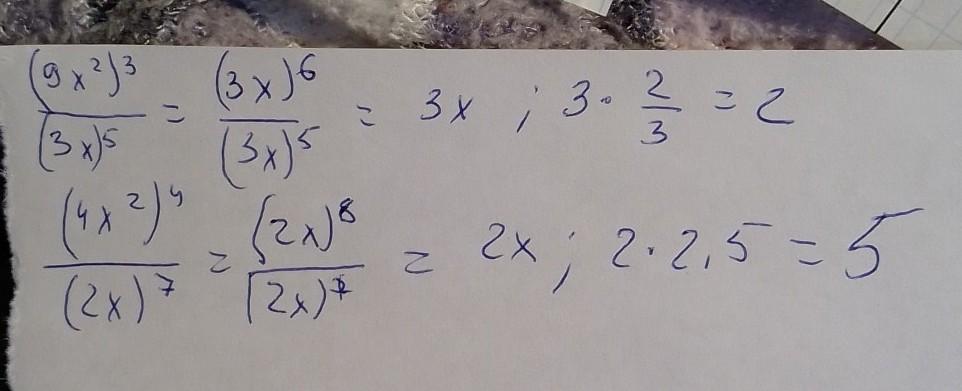 (9x²)³/(3x)⁵ = (3x)⁶/(3x)⁵ = 3x ; 3 · 2/3 = 2
(4x²)⁴/(2x)⁷ = (2x)⁸/(2x)⁷ = 2x ; 2 · 2,5 = 5